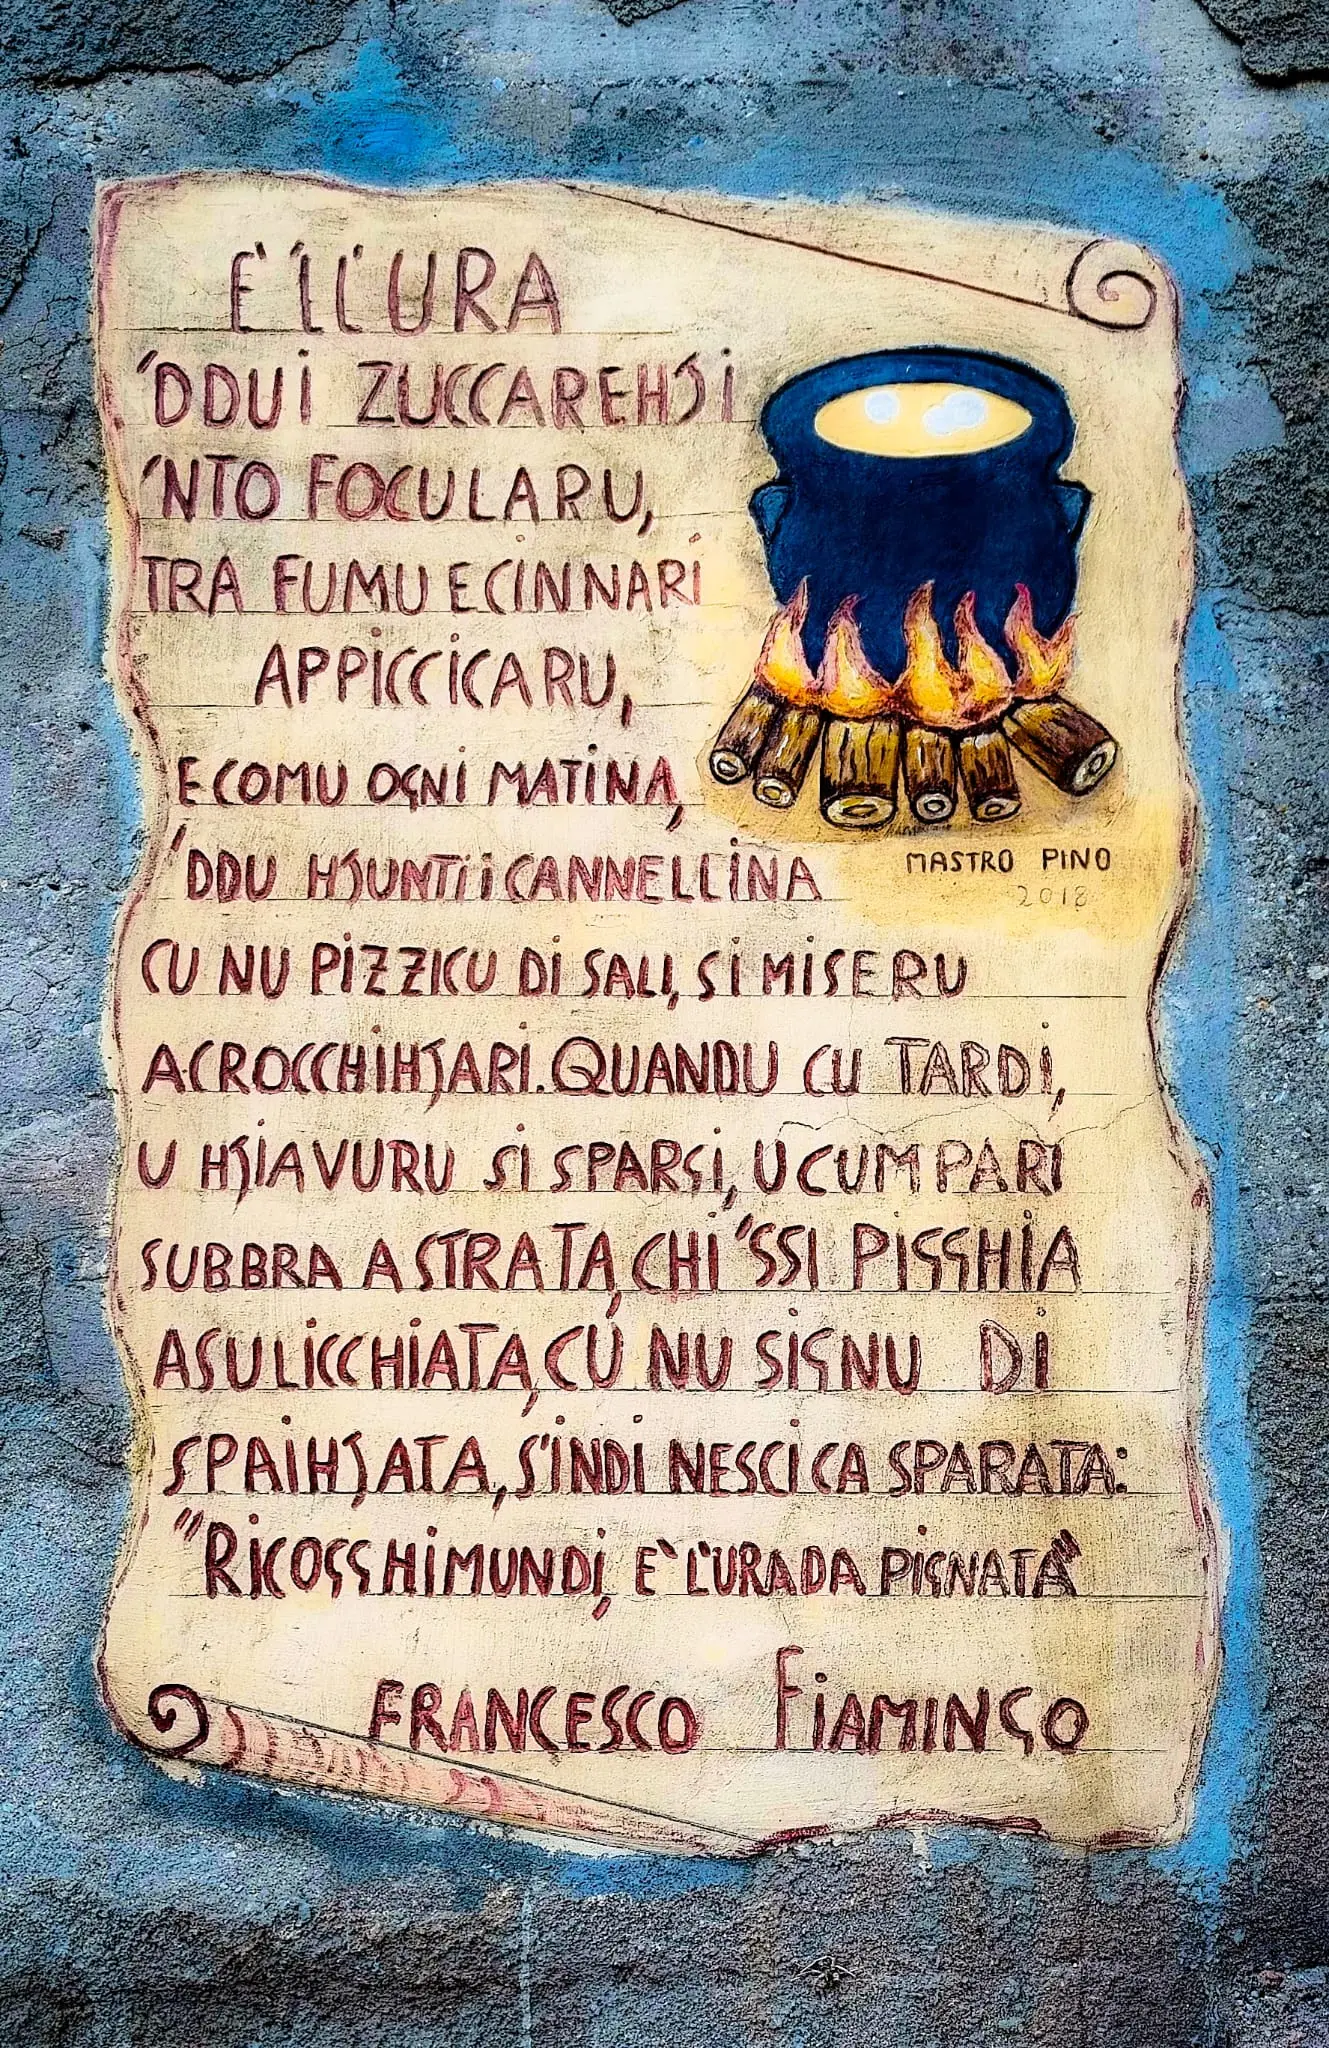 E' 'I L'URA
'DDUI ZUCCAREHJI
'NTO FOCULARU,
TRA FUMU E CINNARI
APPICCICARU,
E COMU OGNI MATINA,
'DDU HJUNTI I CANNELLINA
MASTRO PINO
2018
CU NU PIZZICU DI SALI, SI MISERU
A CROCCHIHJARI. QUANDU CU TARDI,
U HJIAVURU SI SPARGI, U CUMPARI
SUBBRA A STRATA, CHI 'SSI PIGGHIA
A SULICCHIATA, CU NU SIGNU DI
SPAIHJATA, S'INDI NESCI CA SPARATA:
"RICOGGHIMUNDI, E' L'URA DA PIGNATA"
FRANCESCO FIAMINGO